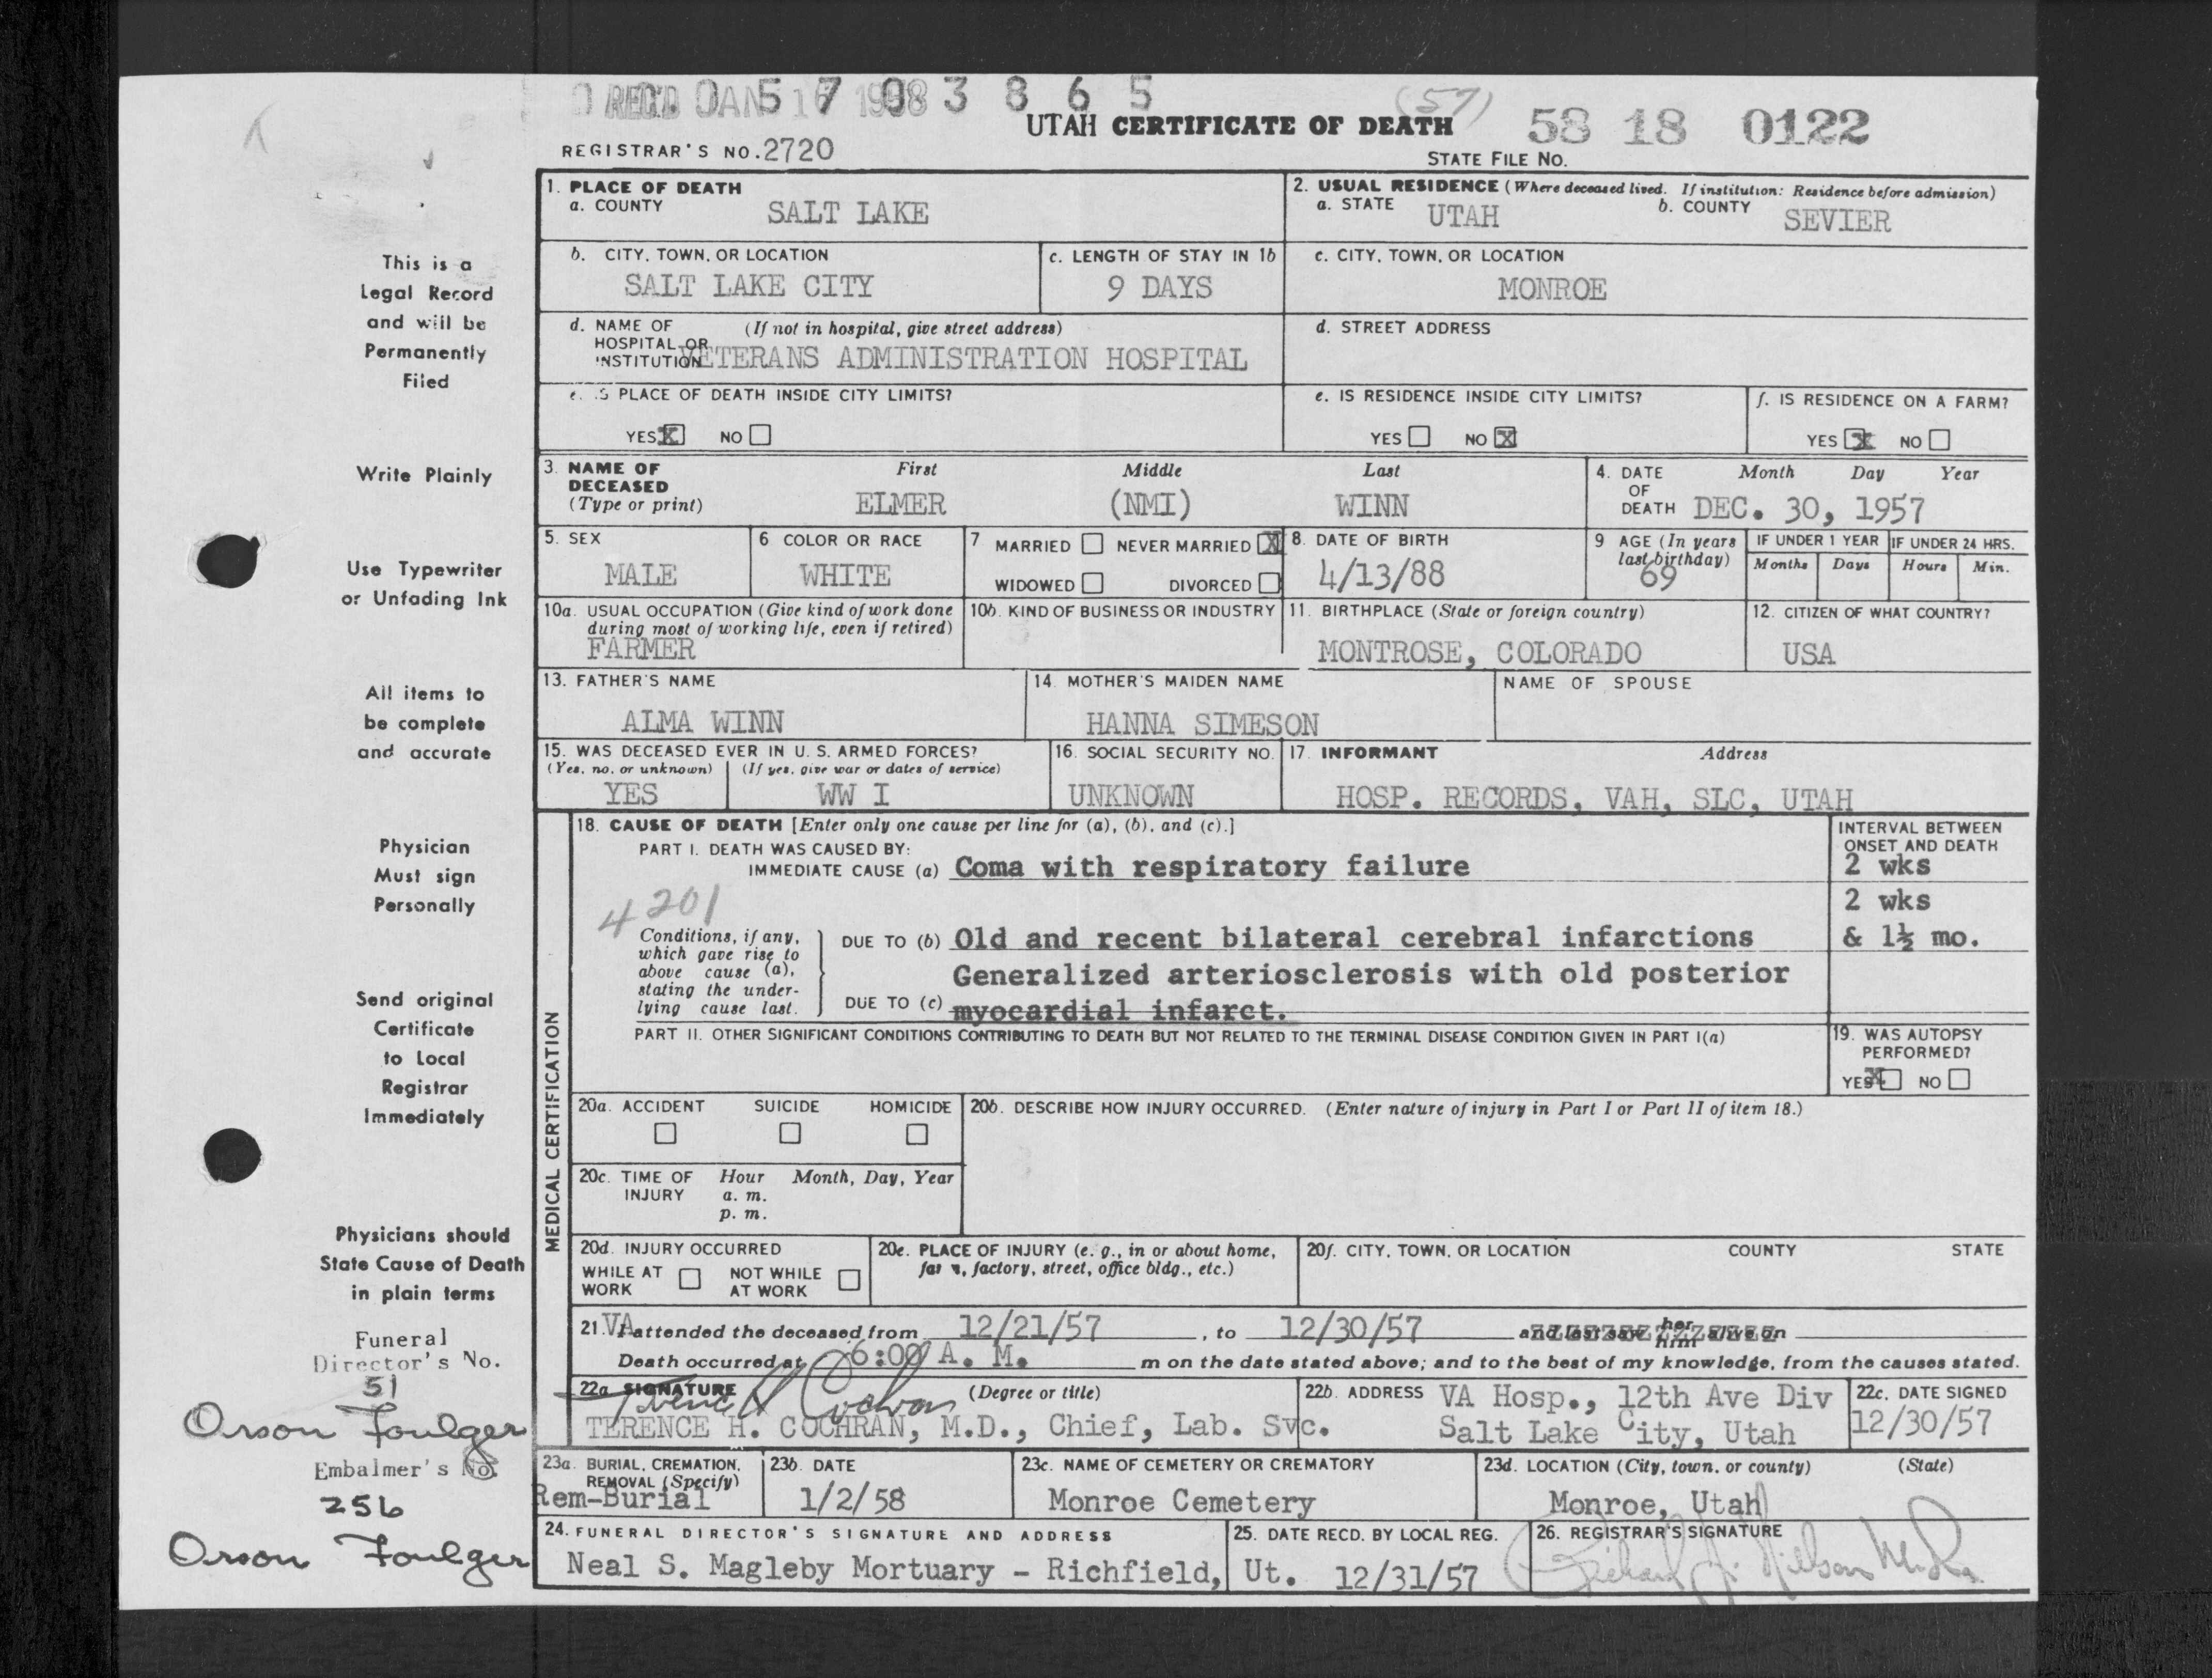 REC'D JAN 16 1958
5 7 0 3 8 6 5
(57)
UTAH CERTIFICATE OF DEATH
58 18 0122
REGISTRAR'S NO. 2720
STATE FILE NO.
1. PLACE OF DEATH
a. COUNTY SALT LAKE
2. USUAL RESIDENCE (Where deceased lived. If institution: Residence before admission)
a. STATE UTAH b. COUNTY SEVIER
b. CITY, TOWN, OR LOCATION
SALT LAKE CITY
c. LENGTH OF STAY IN 1b
9 DAYS
c. CITY, TOWN, OR LOCATION
MONROE
d. NAME OF HOSPITAL OR INSTITUTION (If not in hospital, give street address)
VETERANS ADMINISTRATION HOSPITAL
d. STREET ADDRESS
e. IS PLACE OF DEATH INSIDE CITY LIMITS?
YES X NO
e. IS RESIDENCE INSIDE CITY LIMITS?
YES NO X
f. IS RESIDENCE ON A FARM?
YES X NO
3. NAME OF DECEASED (Type or print)
First Middle Last
ELMER (NMI) WINN
4. DATE OF DEATH Month Day Year
DEC. 30, 1957
5. SEX
MALE
6 COLOR OR RACE
WHITE
7 MARRIED NEVER MARRIED X
WIDOWED DIVORCED
8. DATE OF BIRTH
4/13/88
9 AGE (In years last birthday)
69
IF UNDER 1 YEAR
Months Days
IF UNDER 24 HRS.
Hours Min.
10a. USUAL OCCUPATION (Give kind of work done during most of working life, even if retired)
FARMER
10b. KIND OF BUSINESS OR INDUSTRY
11. BIRTHPLACE (State or foreign country)
MONTROSE, COLORADO
12. CITIZEN OF WHAT COUNTRY?
USA
13. FATHER'S NAME
ALMA WINN
14. MOTHER'S MAIDEN NAME
HANNA SIMESON
NAME OF SPOUSE
15. WAS DECEASED EVER IN U. S. ARMED FORCES?
(Yes, no, or unknown) (If yes, give war or dates of service)
YES WW I
16. SOCIAL SECURITY NO.
UNKNOWN
17. INFORMANT Address
HOSP. RECORDS, VAH, SLC, UTAH
MEDICAL CERTIFICATION
18. CAUSE OF DEATH [Enter only one cause per line for (a), (b), and (c).]
PART I. DEATH WAS CAUSED BY:
IMMEDIATE CAUSE (a) Coma with respiratory failure
INTERVAL BETWEEN ONSET AND DEATH
2 wks
4201
Conditions, if any, which gave rise to above cause (a), stating the underlying cause last.
DUE TO (b) Old and recent bilateral cerebral infarctions
2 wks
& 1½ mo.
Generalized arteriosclerosis with old posterior
DUE TO (c) myocardial infarct.
PART II. OTHER SIGNIFICANT CONDITIONS CONTRIBUTING TO DEATH BUT NOT RELATED TO THE TERMINAL DISEASE CONDITION GIVEN IN PART I(a)
19. WAS AUTOPSY PERFORMED?
YES X NO
20a. ACCIDENT SUICIDE HOMICIDE
20b. DESCRIBE HOW INJURY OCCURRED. (Enter nature of injury in Part I or Part II of item 18.)
20c. TIME OF INJURY Hour Month, Day, Year
a. m.
p. m.
20d. INJURY OCCURRED
WHILE AT WORK NOT WHILE AT WORK
20e. PLACE OF INJURY (e. g., in or about home, farm, factory, street, office bldg., etc.)
20f. CITY, TOWN, OR LOCATION COUNTY STATE
21. VA attended the deceased from 12/21/57, to 12/30/57 and last saw her him alive on
Death occurred at 6:00 A. M. m on the date stated above; and to the best of my knowledge, from the causes stated.
22a. SIGNATURE (Degree or title)
Terence H Cochran
TERENCE H. COCHRAN, M.D., Chief, Lab. Svc.
22b. ADDRESS VA Hosp., 12th Ave Div
Salt Lake City, Utah
22c. DATE SIGNED
12/30/57
23a. BURIAL, CREMATION, REMOVAL (Specify)
Rem-Burial
23b. DATE
1/2/58
23c. NAME OF CEMETERY OR CREMATORY
Monroe Cemetery
23d. LOCATION (City, town, or county) (State)
Monroe, Utah
24. FUNERAL DIRECTOR'S SIGNATURE AND ADDRESS
Neal S. Magleby Mortuary - Richfield, Ut.
25. DATE RECD. BY LOCAL REG.
12/31/57
26. REGISTRAR'S SIGNATURE
This is a
Legal Record
and will be
Permanently
Filed
Write Plainly
Use Typewriter
or Unfading Ink
All items to
be complete
and accurate
Physician
Must sign
Personally
Send original
Certificate
to Local
Registrar
Immediately
Physicians should
State Cause of Death
in plain terms
Funeral
Director's No.
51
Orson Foulger
Embalmer's No.
256
Orson Foulger